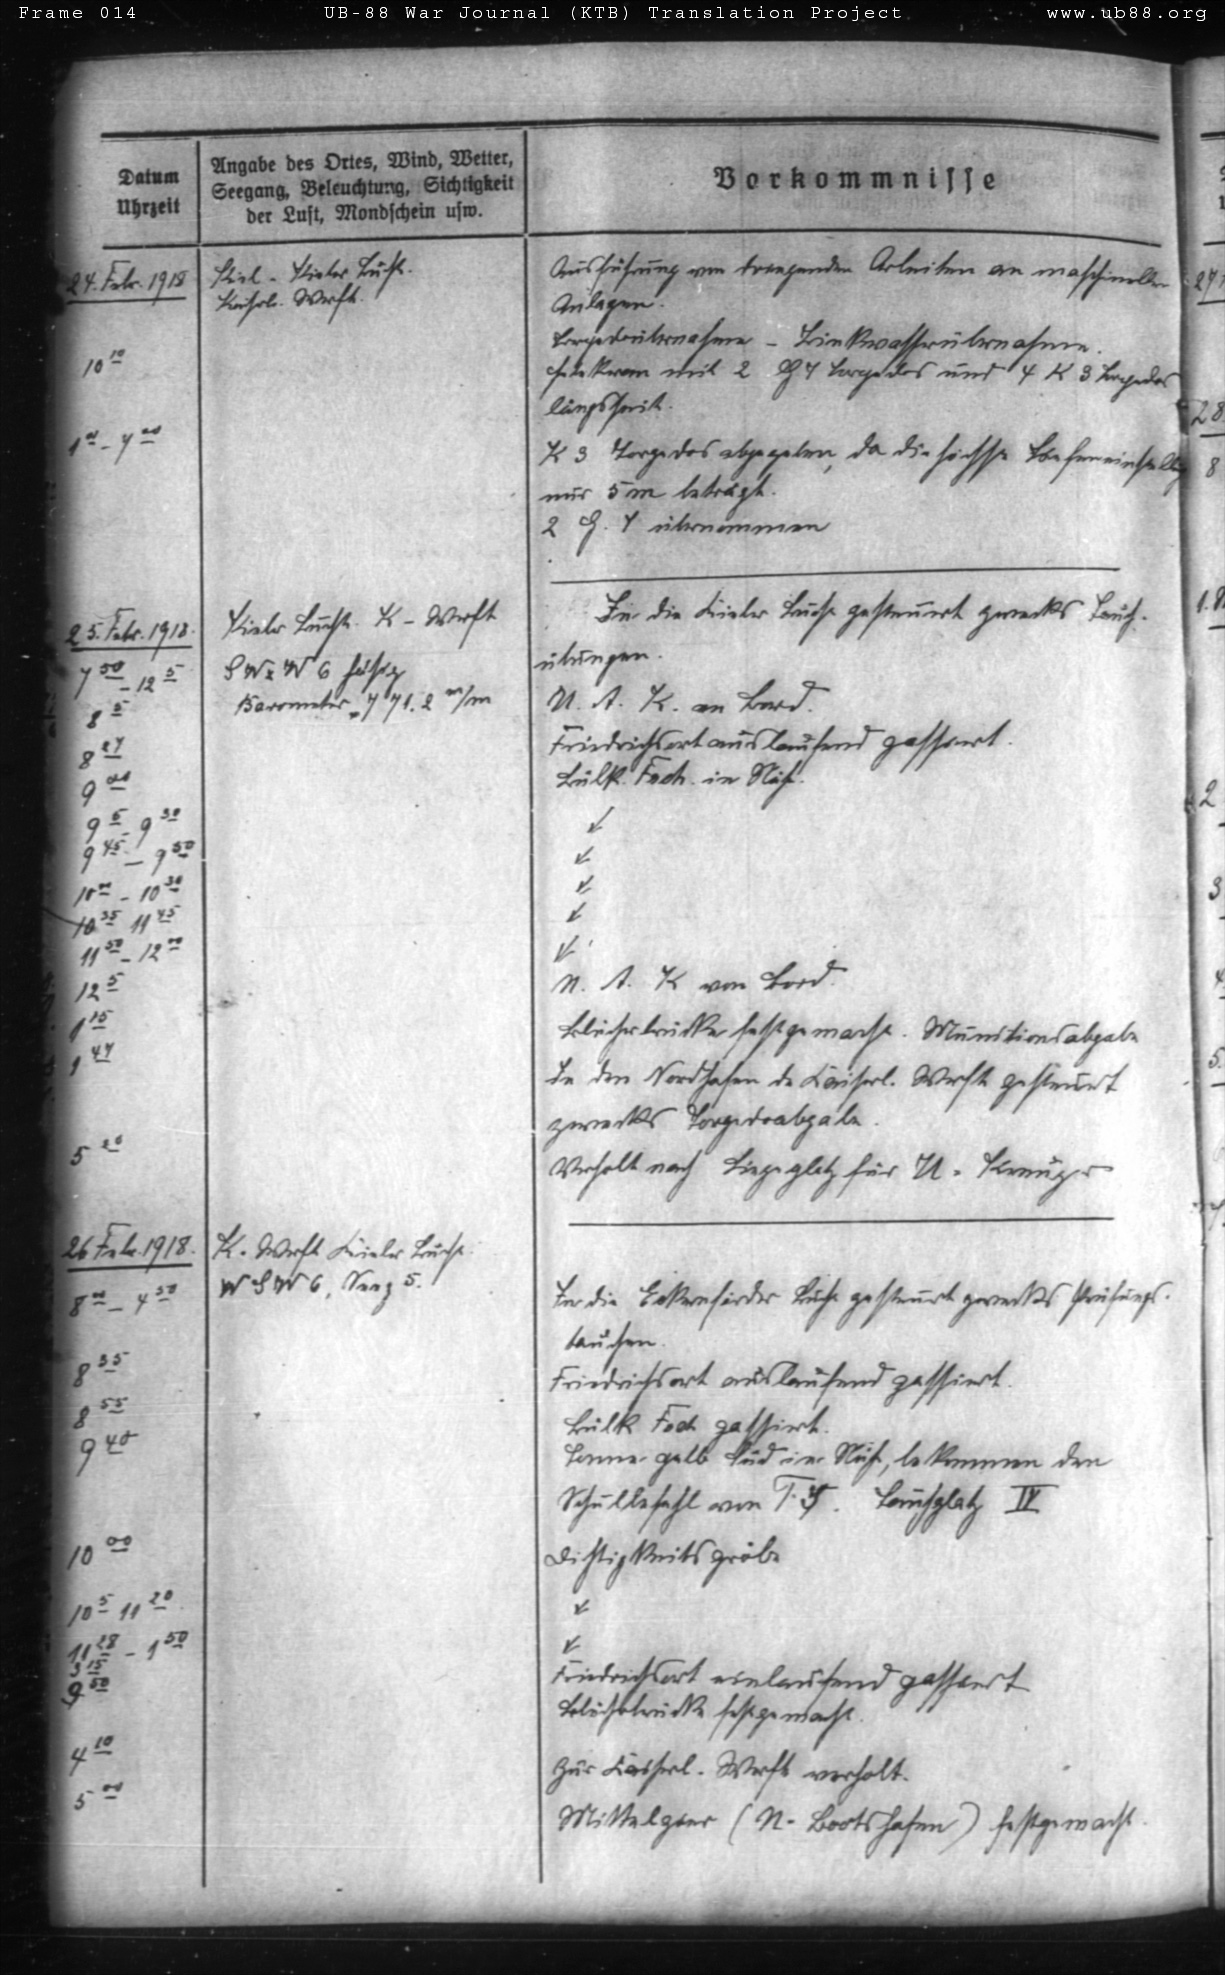 Frame 014 UB-88 War Journal (KTB) Translation Project www.ub88.org
Datum
Uhrzeit
Angabe des Ortes, Wind, Wetter,
Seegang, Beleuchtung, Sichtigkeit
der Luft, Mondschein usw.
Vorkommnisse
24. Febr. 1918 Kiel - Kieler Bucht. Ausführung von dringenden Arbeiten an maschinellen
Kaiserl. Werft. Anlagen.
Torpedoübernahme - Trinkwasserübernahme.
10 10 mit 2 G 7 Torpedos und 4 K 3 Torpedos
längsseit.
1 00 - 7 00 K 3 Torpedos abgegeben, da die höchste Tiefeneinstellung
nur 5 m beträgt.
2 G. 7 übernommen
25. Febr. 1918. Kieler Bucht. K - Werft In die Kieler Bucht gesteuert zwecks Tauch-
übungen.
7 50 - 12 5 SWzW 6 häsig
8 5 Barometer 771.2 m/m U. A. K. an Bord.
8 27 Friedrichsort auslaufend passiert.
9 00 Bülk Fsch. in Näh.
9 5 9 30 ↙
9 45 - 9 50 ↙
10 00 - 10 30 ↙
10 35 11 45 ↙
11 50 - 12 00 ↙
12 5 U. A. K von Bord.
1 15 Blücherbrücke festgemacht. Munitionsabgabe
1 47 In den Nordhafen de Kaiserl. Werft gesteuert
zwecks Torpedoabgabe.
5 20 Verholt nach Liegeplatz für U - Kreuzer
26 Febr. 1918. K. Werft Kieler Bucht
WSW 6, Seeg 5.
8 00 - 4 50 In die Eckernförder Bucht gesteuert zwecks Prüfungs-
tauchen.
8 35 Friedrichsort auslaufend passiert.
8 55 Bülk Fsch passiert.
9 40 Tonne gelb Süd in Näh, bekommen den
Schulbefehl von T. S. Tauchplatz IV
10 00 Dichtigkeitsprobe
10 5 11 20 ↙
11 28 - 1 50 ↙
3 15 Friedrichsort einlaufend passiert
9 50 Blücherbrücke festgemacht.
4 10 Zur Kaiserl. Werft verholt.
5 00 Mittelpier (U - Bootshafen) festgemacht.